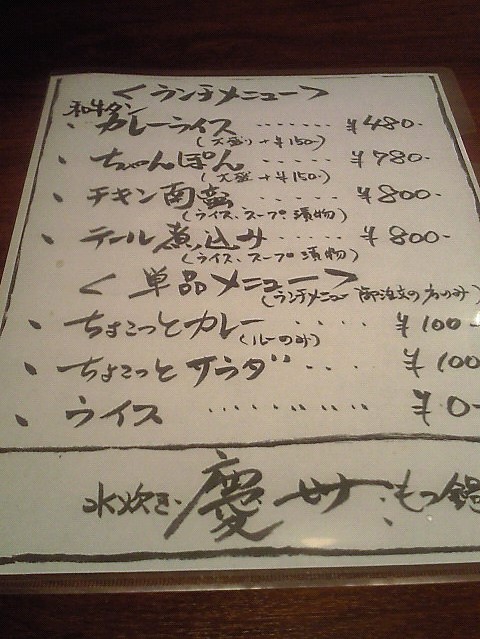 ＜ランチメニュー＞
和牛タン
・カレーライス ‥‥‥ ¥480-
(大盛り+¥150-)
・ちゃんぽん ‥‥‥ ¥780-
(大盛+¥150-)
・チキン南蛮 ‥‥‥ ¥800-
(ライス、スープ、漬物)
・テール煮込み ‥‥‥ ¥800-
(ライス、スープ、漬物)
＜単品メニュー＞
(ランチメニュー御注文の方のみ)
・ちょこっとカレー ‥‥ ¥100-
(ルーのみ)
・ちょこっとサラダ ‥‥ ¥100
・ライス ‥‥‥‥‥ ¥0-
水炊き・慶 ・もつ鍋